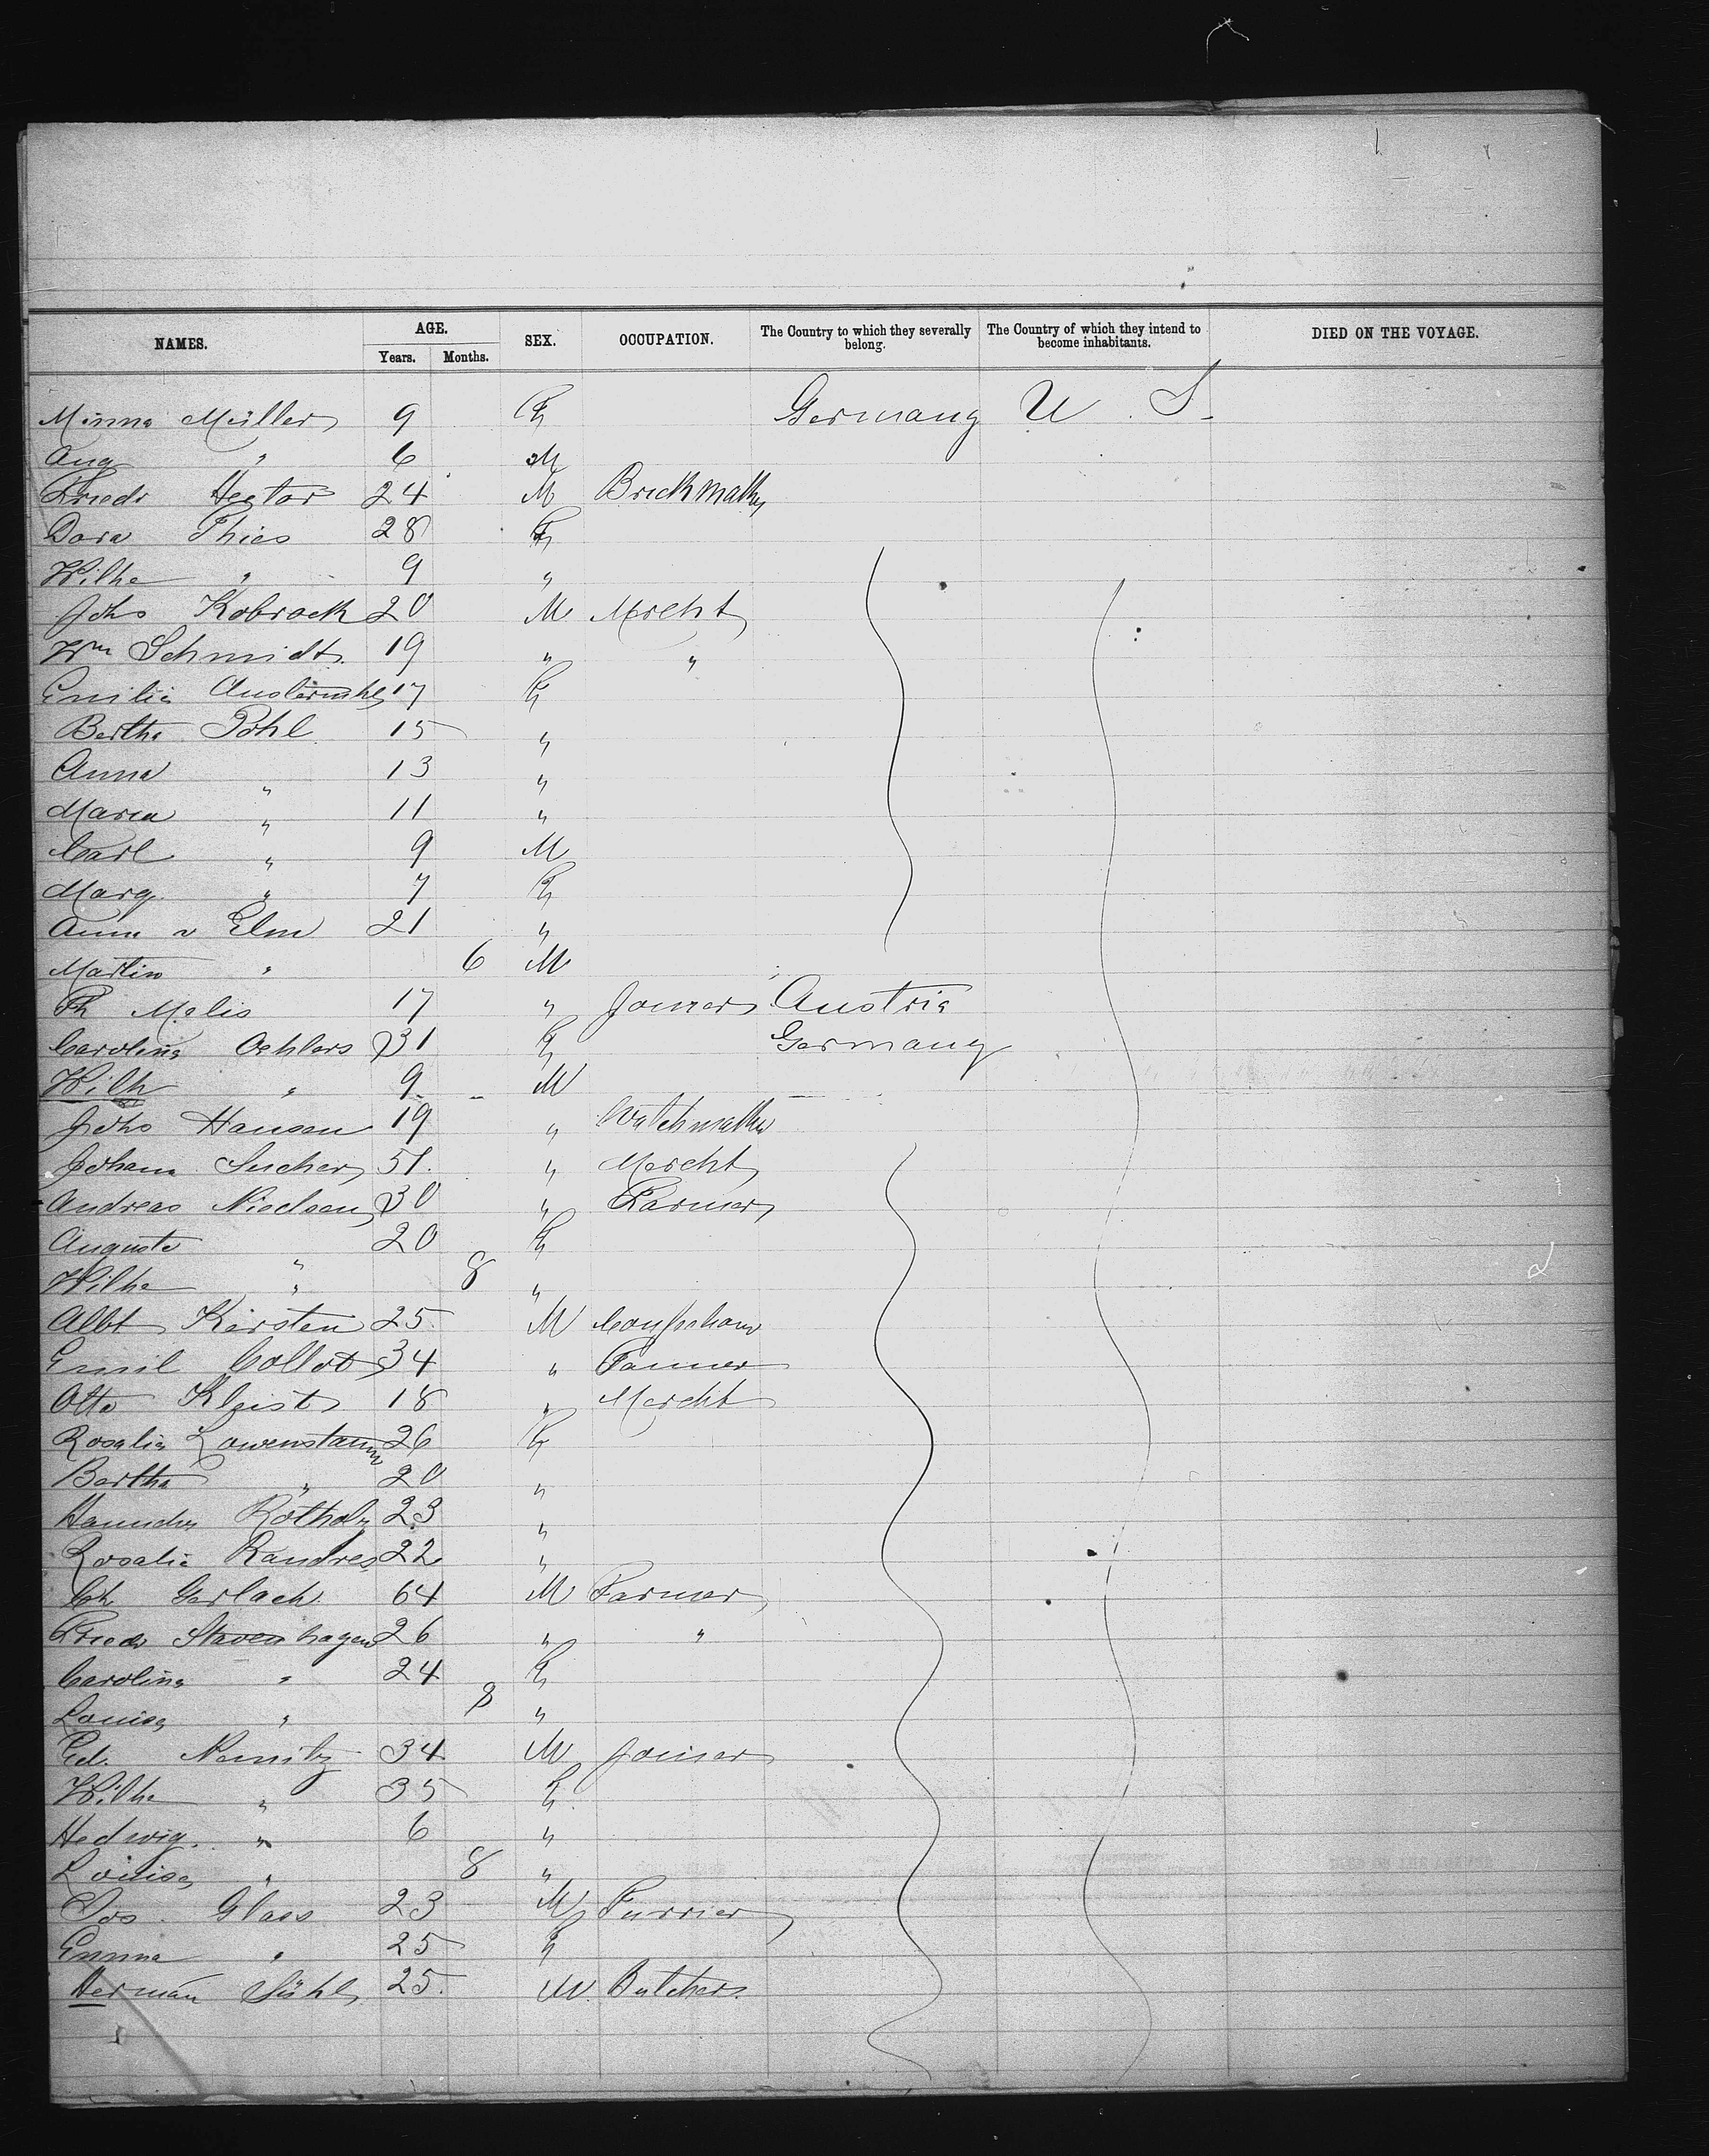 NAMES. AGE. SEX. OCCUPATION. The Country to which they severally belong. The Country of which they intend to become inhabitants. DIED ON THE VOYAGE.
Years. Months.
Minna Müller 9 F Germany U. S.
Aug " 6 M
Friedr Hector 24 M Brickmaker
Dora Thies 28 F
Wilhe " 9 "
Johs Kobrock 20 M Mercht
Wm Schmidt 19 " "
Emilie 17 F
Bertha Pohl 15 "
Anna " 13 "
Maria " 11 "
Carl " 9 M
Marg. " 7 F
Anna v Elm 21 "
Martin " 6 M
Ph Malis 17 " Joiner Austria
Caroline Oehlers 31 F Germany
Wilh " 9 M
Johs Hansen 19 " Watchmaker
Johann Sucher 51. " Mercht
Andreas Nielsen 30 " Farmer
Auguste " 20 F
Wilhe " 8 "
Albt Kersten 25 M
Emil Collot 34 " Tanner
Otto Kleist 18 " Mercht
Rosalie Lowenstamm 26 F
Bertha " 20 "
Rotholz 23 "
Rosalie Randres 22 "
Ch Gerlach 64 M Farmer
Friedr Stavenhagen 26 " "
Caroline " 24 F
Louise " 8 "
Ed. Nemitz 34 M Joiner
Wilhe " 35 F
Hedwig. " 6 "
Louise " 8 "
Jos. Glass 23 M Furrier
Emma " 25 F
Herman Sühl 25. M. Butcher